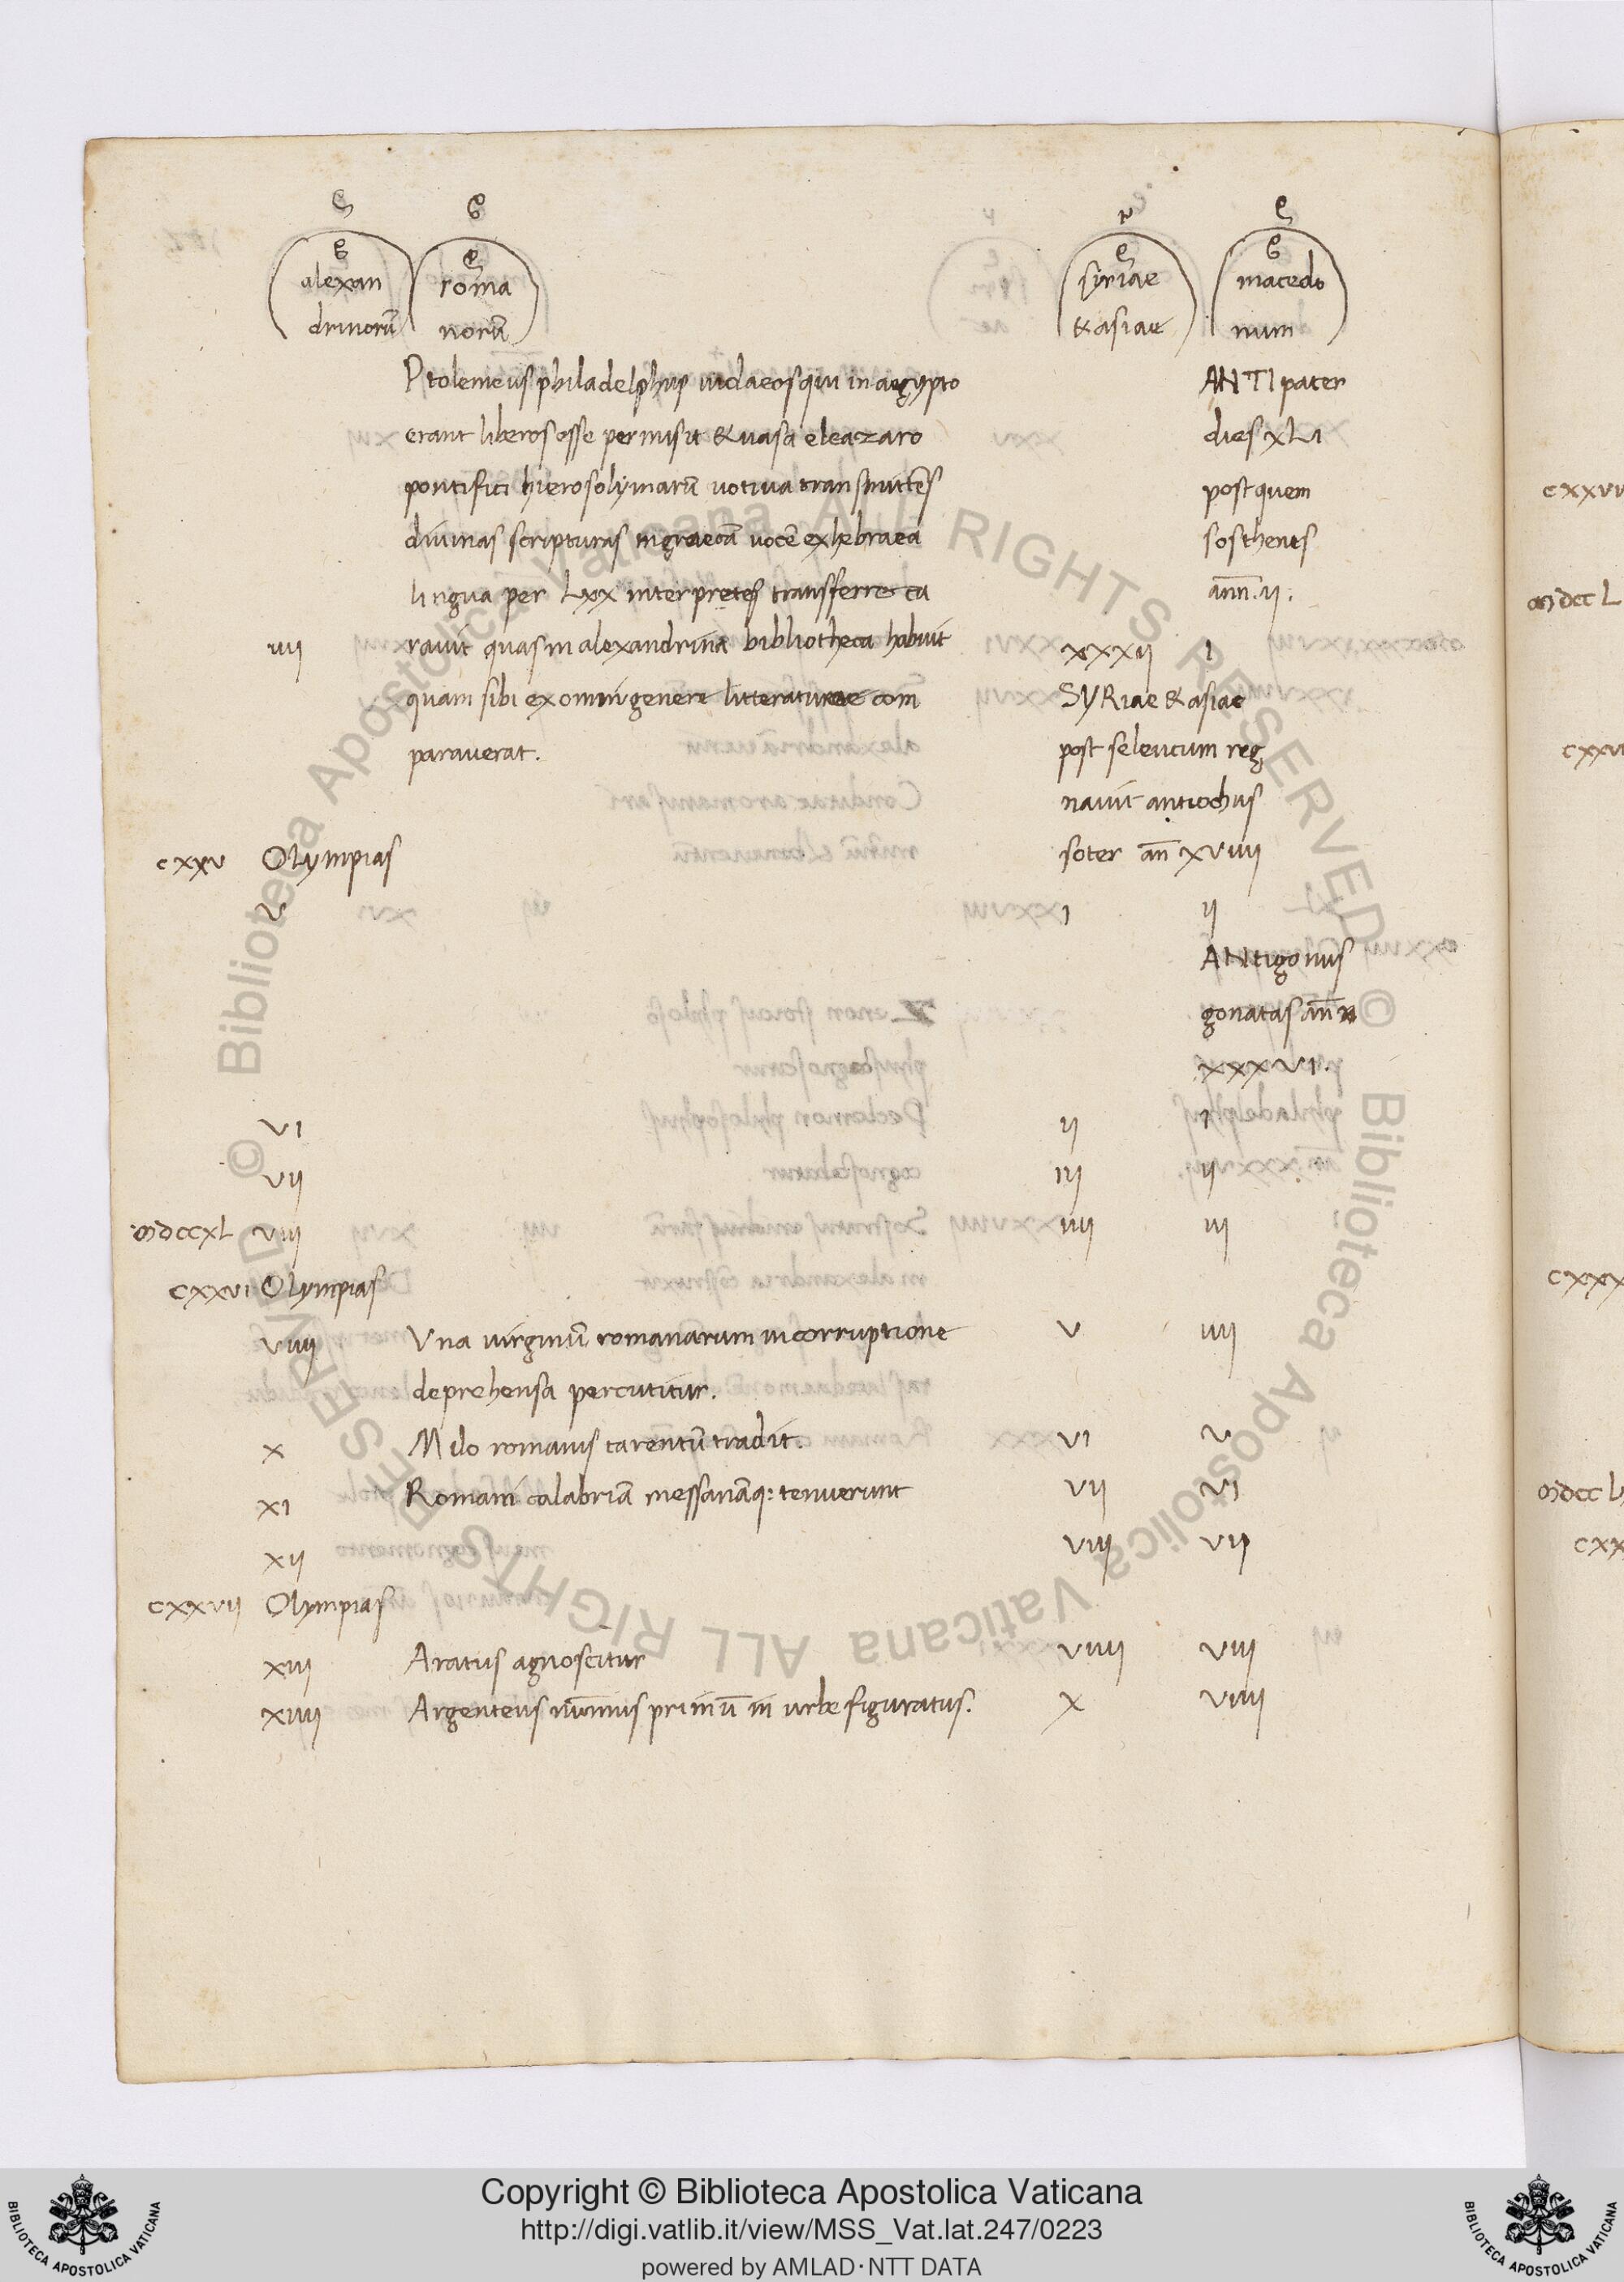 alexan roma syriae macedo
drinorū norū & asiae num
Ptolemeus philadelphus iudaeos qui in aegypto ANTIpater
erant liberos esse permisit & uasa eleazaro dies XLI
pontifici hierosolymarū votiva transmittēs post quem
divinas scripturas in graecā vocē ex hebraea sosthenes
lingua per LXX interpretes transferre cu ann̄. ii.
iiii ravit quas in alexandrina bibliotheca habuit xxxii i
quam sibi ex omni genere litteraturae com SYRiae & asiae
paraverat. post seleucum reg
navit antiochus
cxxv Olympias soter an̄ xviiii
v i ii
ANtigonus
gonatas an̄
xxxvi.
vi ii i
vii iii ii
mdccxl viii iiii iii
cxxvi Olympias
viiii Una virginū romanarum in corruptione v iiii
deprehensa percutitur.
x Milo romanus tarentū tradit. vi v
xi Romani calabriā messanāq: tenuerunt vii vi
xii viii vii
cxxvii Olympias
xiii Aratus agnoscitur viiii viii
xiiii Argenteus nūmus primū in urbe figuratus. x viiii
© Biblioteca Apostolica Vaticana ALL RIGHTS RESERVED
© Biblioteca Apostolica Vaticana ALL RIGHTS RESERVED
Copyright © Biblioteca Apostolica Vaticana
http://digi.vatlib.it/view/MSS_Vat.lat.247/0223
powered by AMLAD·NTT DATA
BIBLIOTECA APOSTOLICA VATICANA
BIBLIOTECA APOSTOLICA VATICANA